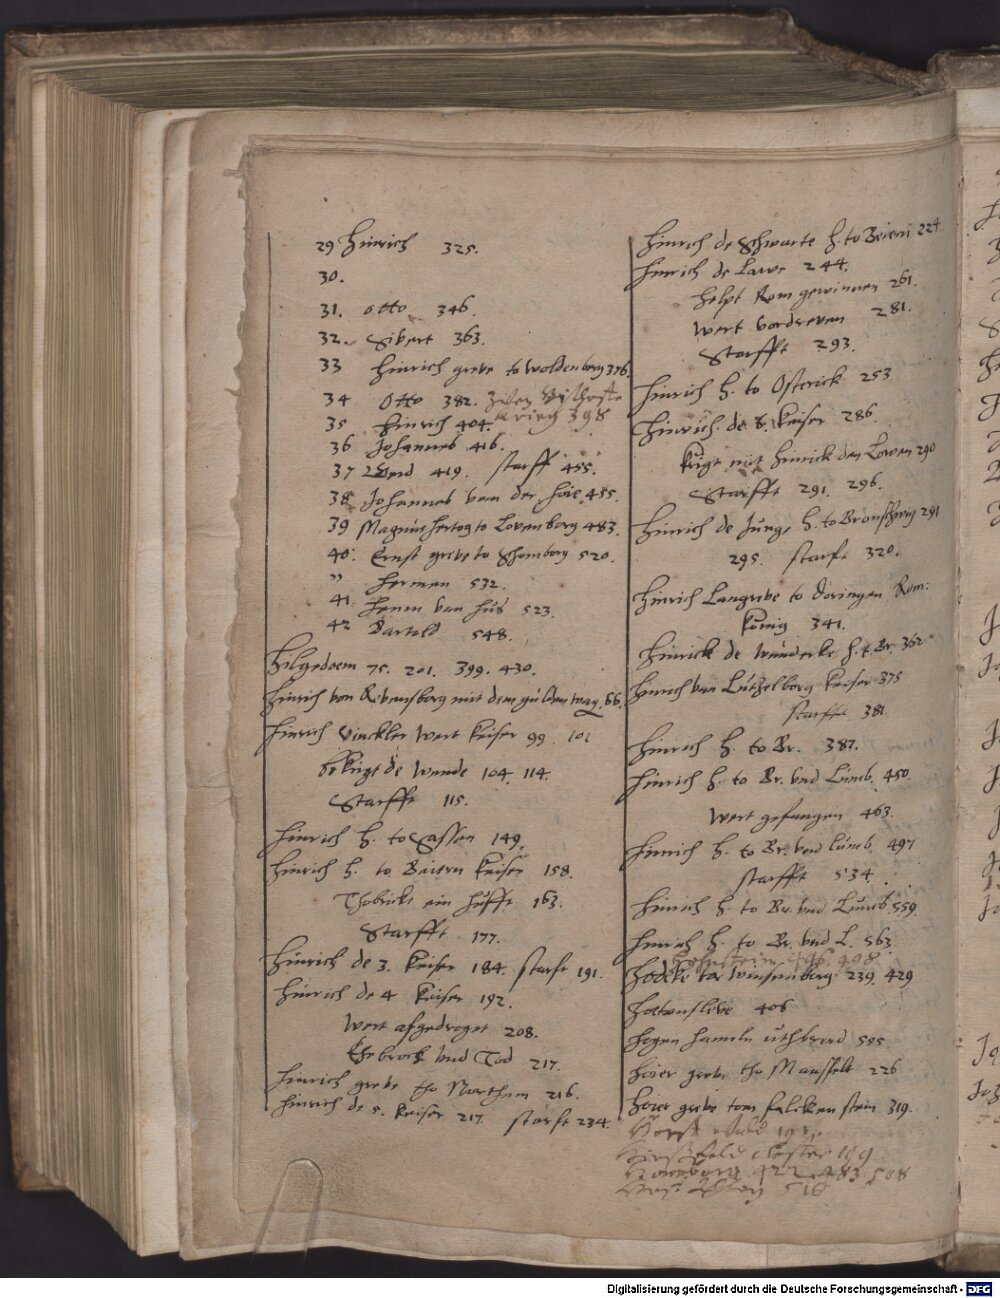 29 Hinrich 325.
30.
31. Otto 346.
32. Sibert 363.
33 Hinrich greve to Woldenberg 376.
34 Otto 382.
Krieg 398
35 Hinrich 404.
36 Johannes 416.
37 Gerd 419. starff 455.
38 Johannes van der Hoie 455.
39 Magnus hertog to Lovenborg 483.
40. Ernst greve to Schomborg 520.
" Hermen 532.
41. Henni van Hus 523.
42 Bartold 548.
Hilgedoem 75. 201. 399. 430.
Hinrich von Ribensborg mit dem gulden 66.
Hinrich Vinckler wert keiser 99. 101
bekrigt de Wende 104. 114.
Starfft 115.
Hinrich H. to Sassen 149.
Hinrich H. to Beiern keiser 158.
ein huffe 163.
Starfft 177.
Hinrich de 3. keiser 184. starft 191.
Hinrich de 4 keiser 192.
Wert afgedroget 208.
Ehebrock und Tod 217.
Hinrich greve tho Northem 216.
Hinrich de 5. keiser 217. starft 234.
Hinrich de Schwarte H. to Beiern 224
Hinrich de Lawe 244.
helpt Rom gewinnen 261.
Wert vordreven 281.
Starfft 293.
Hinrich H. to Osterick 253
Hinrich de 6. keiser 286.
krigt mit Hinrick den Lowen 290
Starfft 291. 296.
Hinrich de Junge H. to Brunschwig 291
295. starft 320.
Hinrich Langreve to Doringen Rom:
konig 341.
Hinrick de Wunderke H. t. Br. 362
Hinrich van Lutzelborg keiser 375
starfft 381.
Hinrich H. to Br. 387.
Hinrich H. to Br. und Lunb. 450.
Wert gefangen 463.
Hinrich H. to Br. und Lunb. 497
starfft 534.
Hinrich H. to Br. und Lunb. 559.
Hinrich H. to Br. und L. 563
496. 498.
Hodeke tor Winsenberg 239. 429
406
Hogen Hameln uthbrend 505
Hoier greve tho Mansfelt 226
Hoier greve tom Falckenstein 319.
Closter 109
422. 483. 508
516
Digitalisierung gefördert durch die Deutsche Forschungsgemeinschaft - DFG